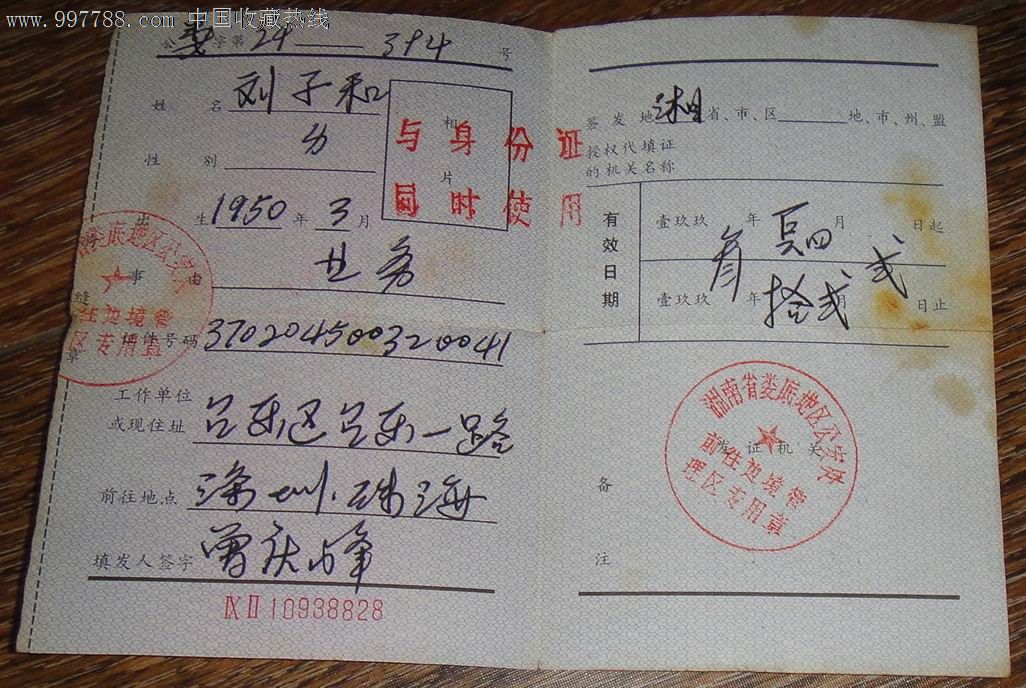 www.997788.com 中国收藏热线
字第24——394号
姓名 刘子和
相片
性别 男
与身份证
同时使用
出生1950年3月
事由 业务
证件号码 370204500320041
工作单位
或现住址 台东区台东一路
前往地点 深圳.珠海
填发人签字 曾庆峰
Ⅸ Ⅱ 10938828
缝章
娄底地区公安
往边境管
区专用章
签发地 湘 省、市、区 地、市、州、盟
授权代填证
的机关名称
有效日期
壹玖玖 年 月 日起
壹玖玖 年 月 日止
叁 拾贰 贰
发证机关
湖南省娄底地区公安处
前往边境管
理区专用章
备注